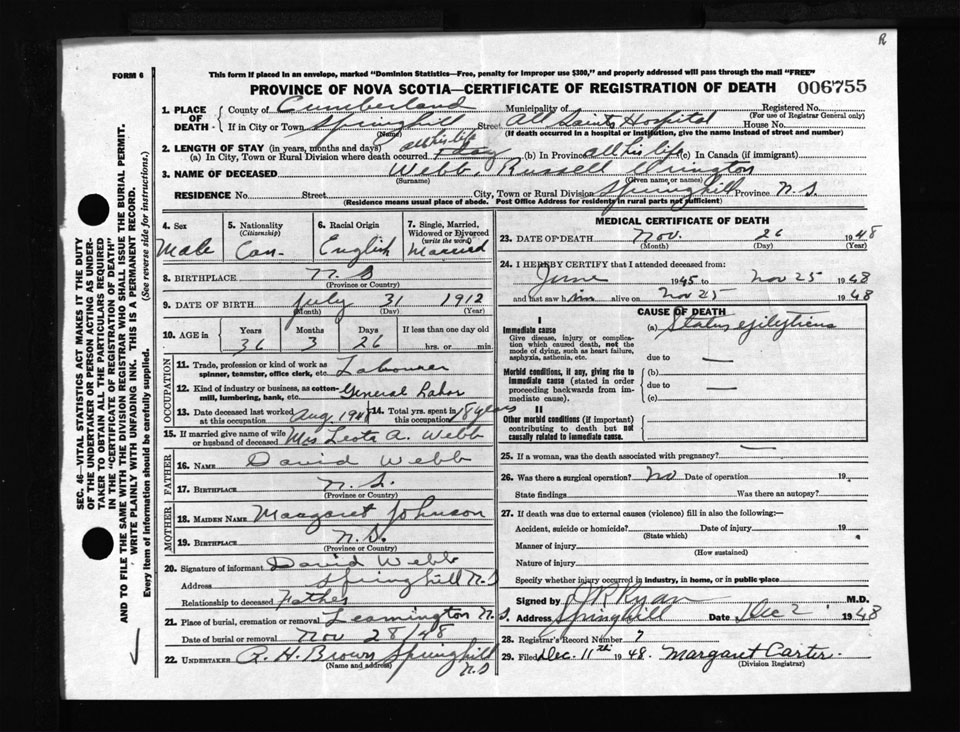 R
FORM 6
This form if placed in an envelope, marked "Dominion Statistics—Free, penalty for improper use $300," and properly addressed will pass through the mail "FREE"
PROVINCE OF NOVA SCOTIA—CERTIFICATE OF REGISTRATION OF DEATH 006755
1. PLACE OF DEATH— County of Cumberland Municipality of Registered No.
(For use of Registrar General only)
If in City or Town Springhill Street All Saints Hospital House No.
(Name) (If death occurred in a hospital or institution, give the name instead of street and number)
2. LENGTH OF STAY (in years, months and days) all his life
(a) In City, Town or Rural Division where death occurred 1 day (b) In Province all his life (c) In Canada (if immigrant)
3. NAME OF DECEASED Webb, Russell
(Surname) (Given name or names)
RESIDENCE No. Street City, Town or Rural Division Springhill Province N.S.
(Residence means usual place of abode. Post Office Address for residents in rural parts not sufficient)
4. Sex Male
5. Nationality (Citizenship) Can-
6. Racial Origin English
7. Single, Married, Widowed or Divorced (write the word) Married
8. BIRTHPLACE N.S
(Province or Country)
9. DATE OF BIRTH July 31 1912
(Month) (Day) (Year)
10. AGE in Years Months Days If less than one day old
36 3 26 hrs. or min.
OCCUPATION
11. Trade, profession or kind of work as spinner, teamster, office clerk, etc. Labourer
12. Kind of industry or business, as cotton-mill, lumbering, bank, etc. General Labor
13. Date deceased last worked at this occupation Aug. 1948
14. Total yrs. spent in this occupation 18 years
15. If married give name of wife or husband of deceased Mrs Leota A. Webb
FATHER
16. NAME David Webb
17. BIRTHPLACE N.S.
(Province or Country)
MOTHER
18. MAIDEN NAME Margaret Johnson
19. BIRTHPLACE N.S.
(Province or Country)
20. Signature of informant David Webb
Address Springhill N.S
Relationship to deceased Father
21. Place of burial, cremation or removal Leamington N.S.
Date of burial or removal Nov 28/48
22. UNDERTAKER A. H. Brown Springhill N.S
(Name and address)
MEDICAL CERTIFICATE OF DEATH
23. DATE OF DEATH Nov. 26 1948
(Month) (Day) (Year)
24. I HEREBY CERTIFY that I attended deceased from:
June 1945 to Nov 25 1948
and last saw him alive on Nov 25 1948
CAUSE OF DEATH
I
Immediate cause (a) Status epilepticus
Give disease, injury or complication which caused death, not the mode of dying, such as heart failure, asphyxia, asthenia, etc.
due to —
Morbid conditions, if any, giving rise to immediate cause (stated in order proceeding backwards from immediate cause).
(b)
due to —
(c)
II
Other morbid conditions (if important) contributing to death but not causally related to immediate cause.
25. If a woman, was the death associated with pregnancy? —
26. Was there a surgical operation? No Date of operation 19
State findings Was there an autopsy?
27. If death was due to external causes (violence) fill in also the following:—
Accident, suicide or homicide? Date of injury 19
(State which)
Manner of injury
(How sustained)
Nature of injury
Specify whether injury occurred in industry, in home, or in public place
Signed by J P Ryan M.D.
Address Springhill Date Dec 2 1948
28. Registrar's Record Number 7
29. Filed Dec. 11th 1948. Margaret Carter
(Division Registrar)
SEC. 46—VITAL STATISTICS ACT MAKES IT THE DUTY
OF THE UNDERTAKER OR PERSON ACTING AS UNDER-
TAKER TO OBTAIN ALL THE PARTICULARS REQUIRED
IN THE "CERTIFICATE OF REGISTRATION OF DEATH"
AND TO FILE THE SAME WITH THE DIVISION REGISTRAR WHO SHALL ISSUE THE BURIAL PERMIT.
WRITE PLAINLY WITH UNFADING INK. THIS IS A PERMANENT RECORD.
Every item of information should be carefully supplied. (See reverse side for instructions.)